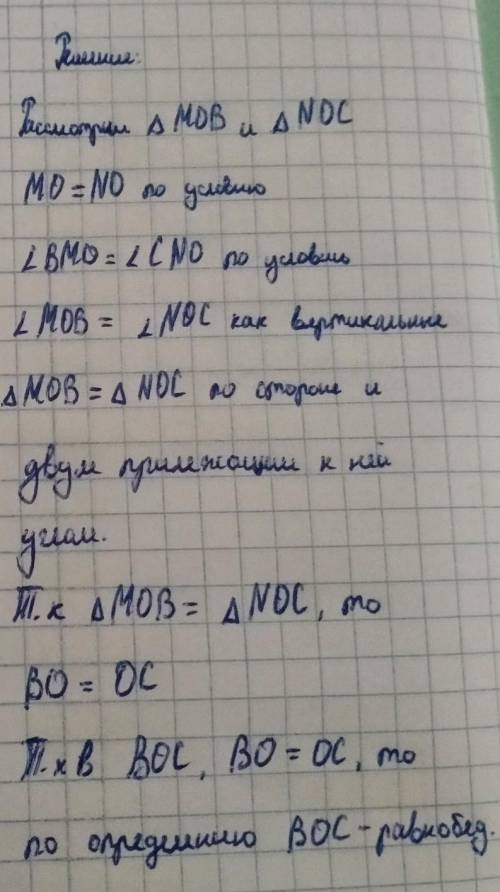 Решение:
Рассмотрим △MOB и △NOC
MO = NO по условию
∠BMO = ∠CNO по условию
∠MOB = ∠NOC как вертикальные
△MOB = △NOC по стороне и
двум прилежащим к ней
углам.
Т.к △MOB = △NOC, то
BO = OC
Т.к в BOC, BO = OC, то
по определению BOC - равнобед.